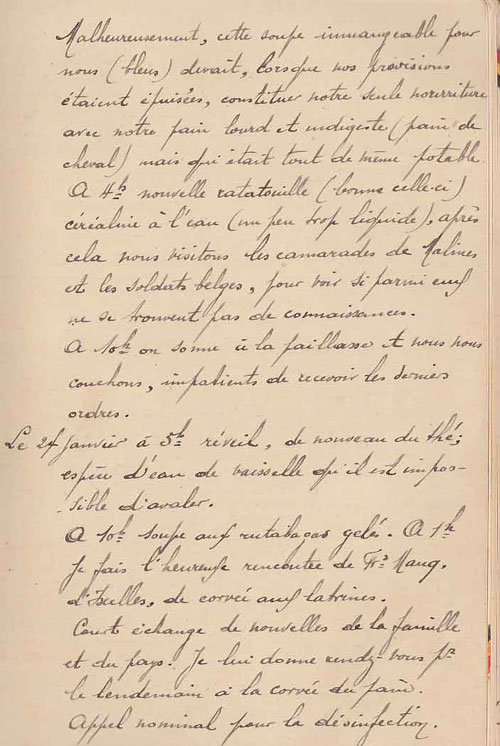 Malheureusement, cette soupe immangeable pour
nous (bleus) devait, lorsque nos provisions
étaient épuisées, constituer notre seule nourriture
avec notre pain lourd et indigeste (pain de
cheval) mais qui était tout de même potable
A 4h nouvelle ratatouille (bonne celle-ci)
céréaline à l'eau (un peu trop liquide), après
cela nous visitons les camarades de Malines
et les soldats belges, pour voir si parmi eux
ne se trouvent pas de connaissances.
A 10h on sonne à la paillasse et nous nous
couchons, impatients de recevoir les derniers
ordres.
Le 24 Janvier à 5h réveil, de nouveau du thé;
espèce d'eau de vaisselle qu'il est impos-
-sible d'avaler.
A 10h soupe aux rutabagas gelés. A 1h
Je fais l'heureuse rencontre de Frs Mauq.
d'Ixelles, de corvée aux latrines.
Court échange de nouvelles de la famille
et du pays. Je lui donne rendez-vous pr
le lendemain à la corvée du pain.
Appel nominal pour la désinfection.